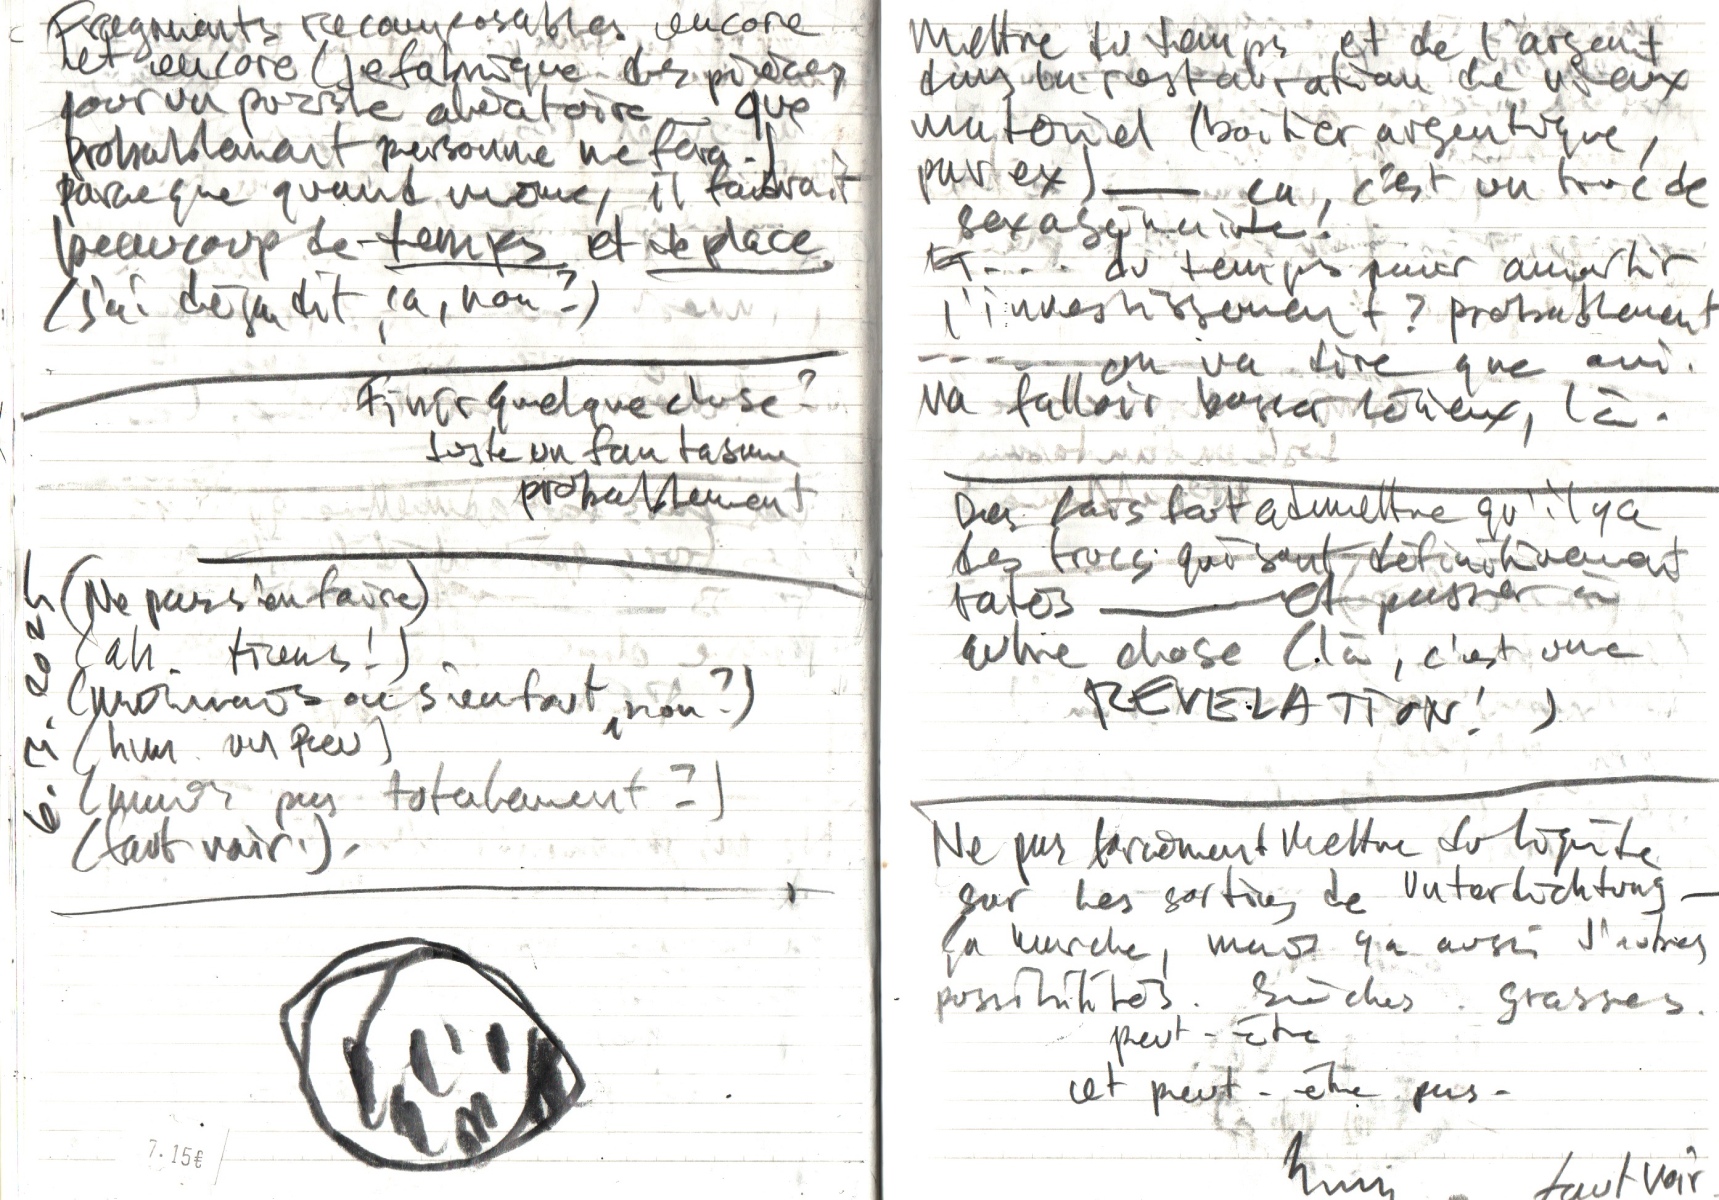 Fragments recomposables encore
et encore (je fabrique des pièces
pour un puzzle aléatoire — que
probablement personne ne fera.)
parceque quand même, il faudrait
beaucoup de temps et de place
(j'ai déjà dit ça, non?)
Finir quelque chose?
juste un fantasme
probablement
(Ne pas s'en faire)
(ah. tiens!)
(mais on s'en fout, non?)
(hum un peu)
(mais pas totalement?)
(faut voir.).
7.15€
Mettre du temps et de l'argent
dans la restauration de vieux
matériel (boitier argentique,
par ex) — ça, c'est un truc de
sexagénaire!
Et.... du temps pour amortir
l'investissement? probablement
---- on va dire que oui.
Va falloir bosser sérieux, là.
Des fois faut admettre qu'il y a
des trucs qui sont définitivement
ratés — et passer à
autre chose (là, c'est une
REVELATION!)
Ne pas forcément mettre du
sur les sorties de Unterlichtung —
ça marche, mais ya aussi d'autres
possibilités. Sèches. grasses.
peut-être
et peut-être pas-
hum - faut voir